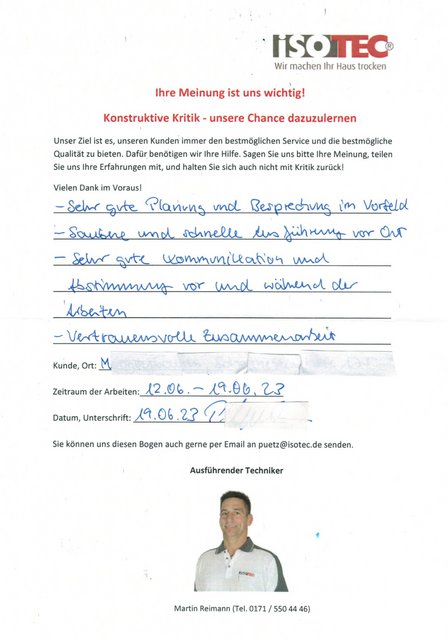 ISOTEC®
Wir machen Ihr Haus trocken
Ihre Meinung ist uns wichtig!
Konstruktive Kritik - unsere Chance dazuzulernen
Unser Ziel ist es, unseren Kunden immer den bestmöglichen Service und die bestmögliche
Qualität zu bieten. Dafür benötigen wir Ihre Hilfe. Sagen Sie uns bitte Ihre Meinung, teilen
Sie uns Ihre Erfahrungen mit, und halten Sie sich auch nicht mit Kritik zurück!
Vielen Dank im Voraus!
- Sehr gute Planung und Besprechung im Vorfeld
- Saubere und schnelle Ausführung vor Ort
- Sehr gute Kommunikation und
Abstimmung vor und während der
Arbeiten
- Vertrauensvolle Zusammenarbeit
Kunde, Ort: M
Zeitraum der Arbeiten: 12.06. - 19.06.23
Datum, Unterschrift: 19.06.23
Sie können uns diesen Bogen auch gerne per Email an puetz@isotec.de senden.
Ausführender Techniker
ISOTEC
Martin Reimann (Tel. 0171 / 550 44 46)